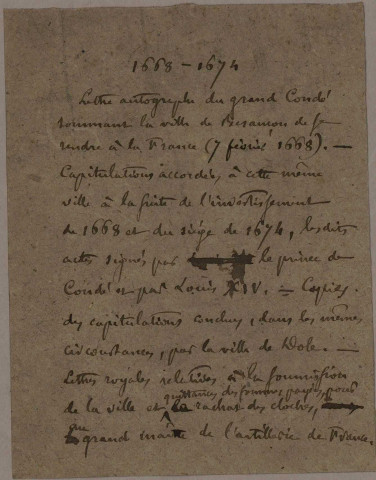 1668 - 1674
Lettre autographe du grand Condé
sommant la ville de Besançon de se
rendre à la France (7 février 1668). —
Capitulations accordées à cette même
ville à la suite de l'investissement
de 1668 et du siège de 1674, lesdits
actes signés par le prince de
Condé et par Louis XIV. — Copies
des capitulations conclues, dans les mêmes
circonstances, par la ville de Dole. —
Lettres royales relatives à la soumission
quittances des sommes payées pour
de la ville et rachat des cloches,
grand maître de l'artillerie de France.